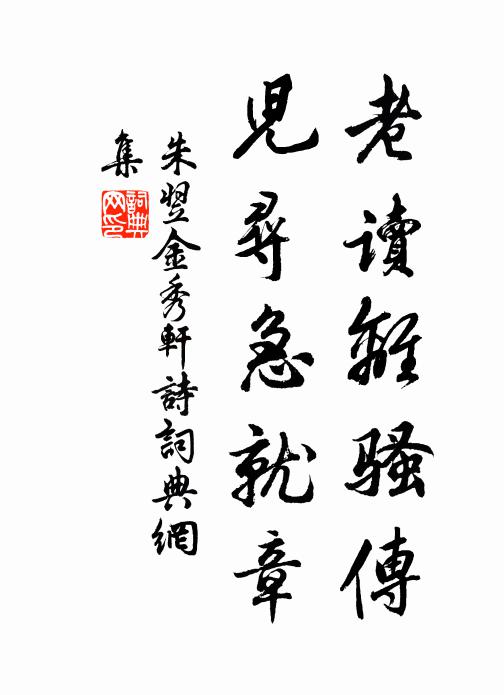 老讀離騷傳
兒尋急就章
朱翌金秀軒詩詞典網
集
詞典網印